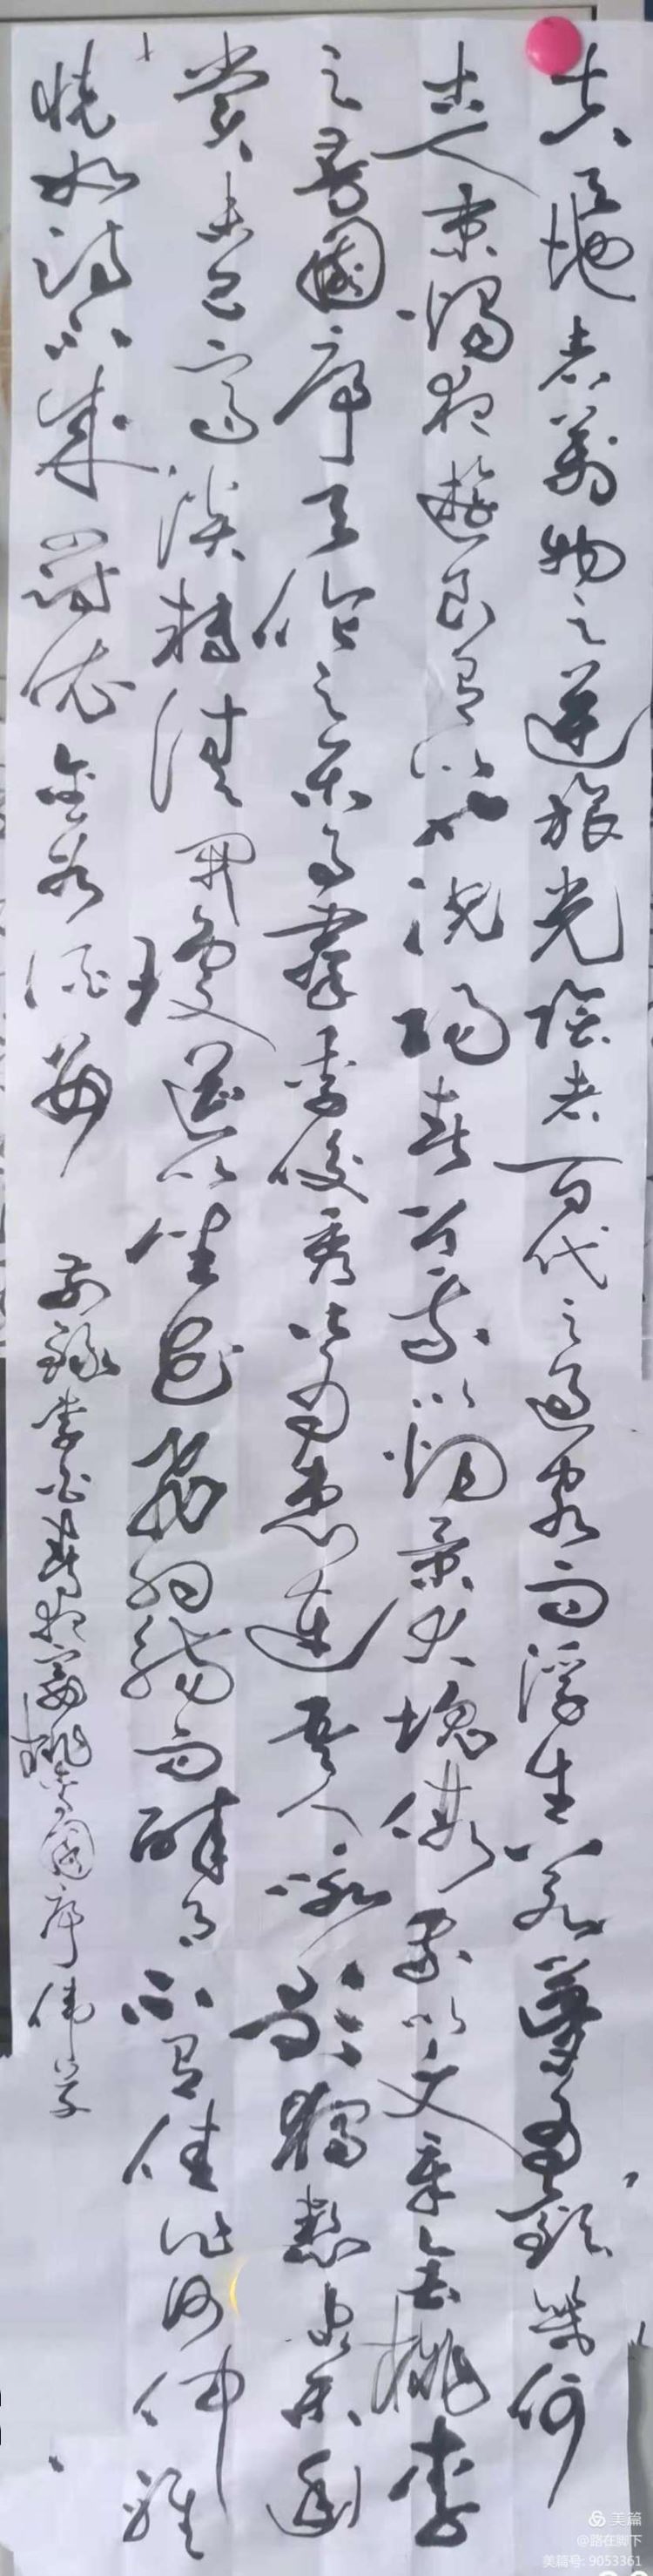 夫天地者萬物之逆旅光陰者百代之過客而浮生若夢為歡幾何
古人秉燭夜遊良有以也況陽春召我以煙景大塊假我以文章會桃李
之芳園序天倫之樂事羣季俊秀皆為惠連吾人詠歌獨慙康樂幽
賞未已高談轉清開瓊筵以坐花飛羽觴而醉月不有佳作何伸雅
懷如詩不成罰依金谷酒數
錄李白春夜宴桃李園序
美篇
@路在脚下
美篇号: 9053361